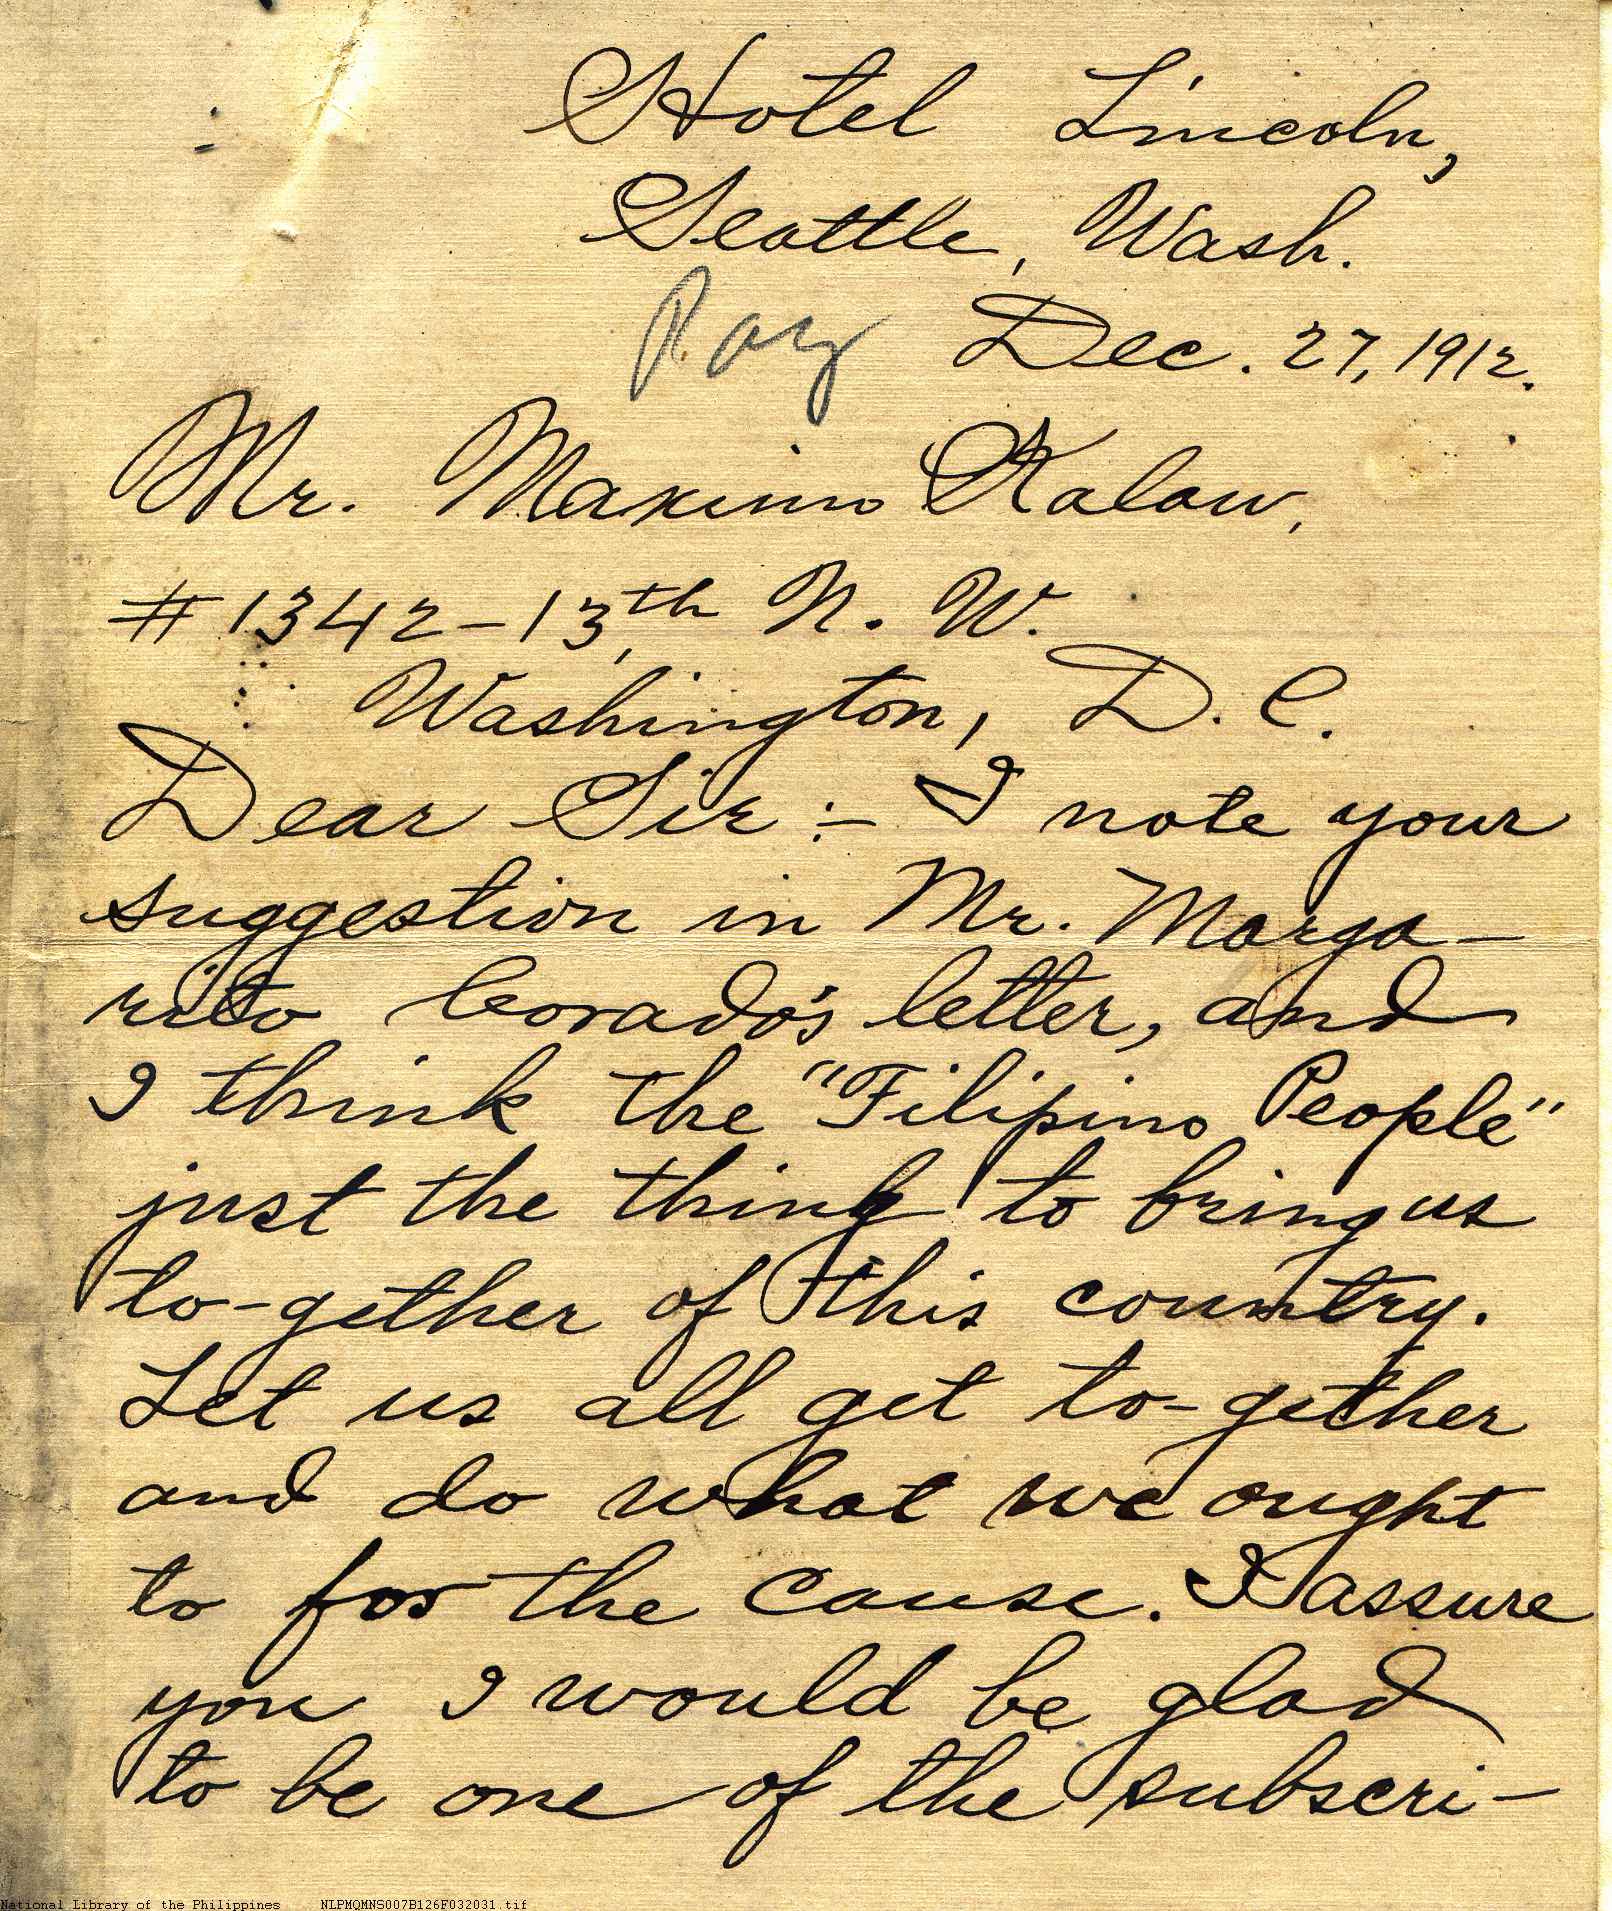 Hotel Lincoln,
Seattle, Wash.
Ray
Dec. 27, 1912.
Mr. Maximo Kalaw,
# 1342-13th, N. W.
Washington, D. C.
Dear Sir:- I note your
suggestion in Mr. Marga-
rito Corado's letter, and
I think the "Filipino People"
just the thing to bring us
to-gether of this country.
Let us all get to-gether
and do what we ought
to for the cause. I assure
you I would be glad
to be one of the subscri-
National Library of the Philippines NLPMQMNS007B126F032031.tif